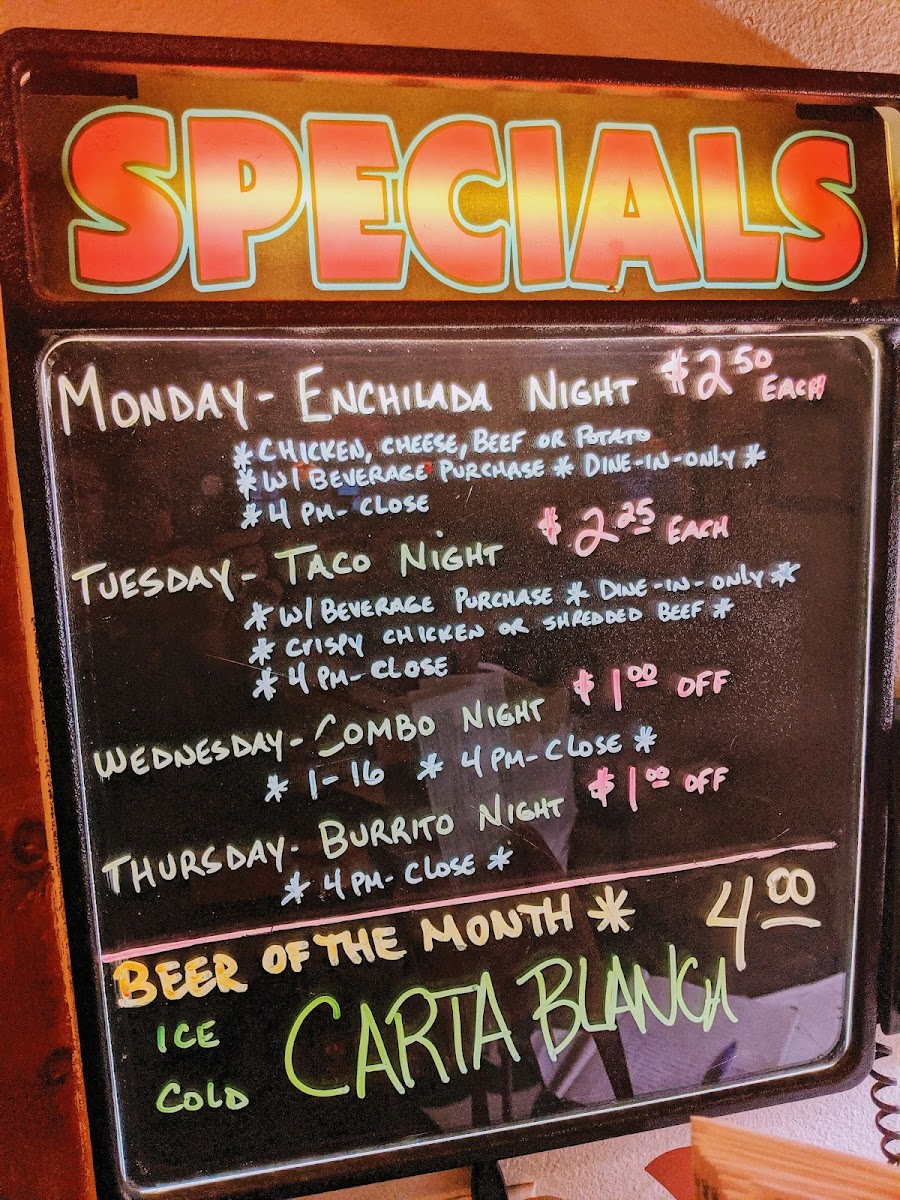 SPECIALS
MONDAY - ENCHILADA NIGHT $2.50 EACH
* CHICKEN, CHEESE, BEEF OR POTATO
* W/ BEVERAGE PURCHASE * DINE-IN-ONLY *
* 4 PM - CLOSE
TUESDAY - TACO NIGHT $2.25 EACH
* W/ BEVERAGE PURCHASE * DINE-IN-ONLY *
* CRISPY CHICKEN OR SHREDDED BEEF *
* 4 PM - CLOSE
WEDNESDAY - COMBO NIGHT $1.00 OFF
* 1-16 * 4 PM - CLOSE *
THURSDAY - BURRITO NIGHT $1.00 OFF
* 4 PM - CLOSE *
BEER OF THE MONTH * 4.00
ICE COLD CARTA BLANCA